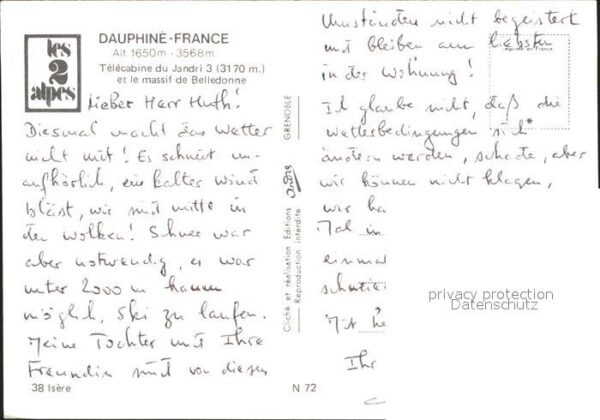 les
2
alpes
DAUPHINÉ-FRANCE
Alt. 1650m - 3568m
Télécabine du Jandri 3 (3170 m.)
et le massif de Belledonne
Lieber Herr Huth!
Diesmal macht das Wetter
nicht mit! Es schneit un-
aufhörlich, ein kalter Wind
bläst, wir sind mitte in
den Wolken! Schnee war
aber notwendig, es war
unter 2000 m kaum
möglich, Ski zu laufen.
Meine Tochter und Ihre
Freundin sind von diesen
38 Isère
GRENOBLE
Cliché et réalisation Editions
Reproduction interdite
N 72
Umständen nicht begeistert
und bleiben am liebsten
in der Wohnung!
Ich glaube nicht, daß die
Wetterbedingungen sich
ändern werden, schade, aber
wir können nicht klagen,
Mal in
einmal
Mit he
Ihr
privacy protection
Datenschutz